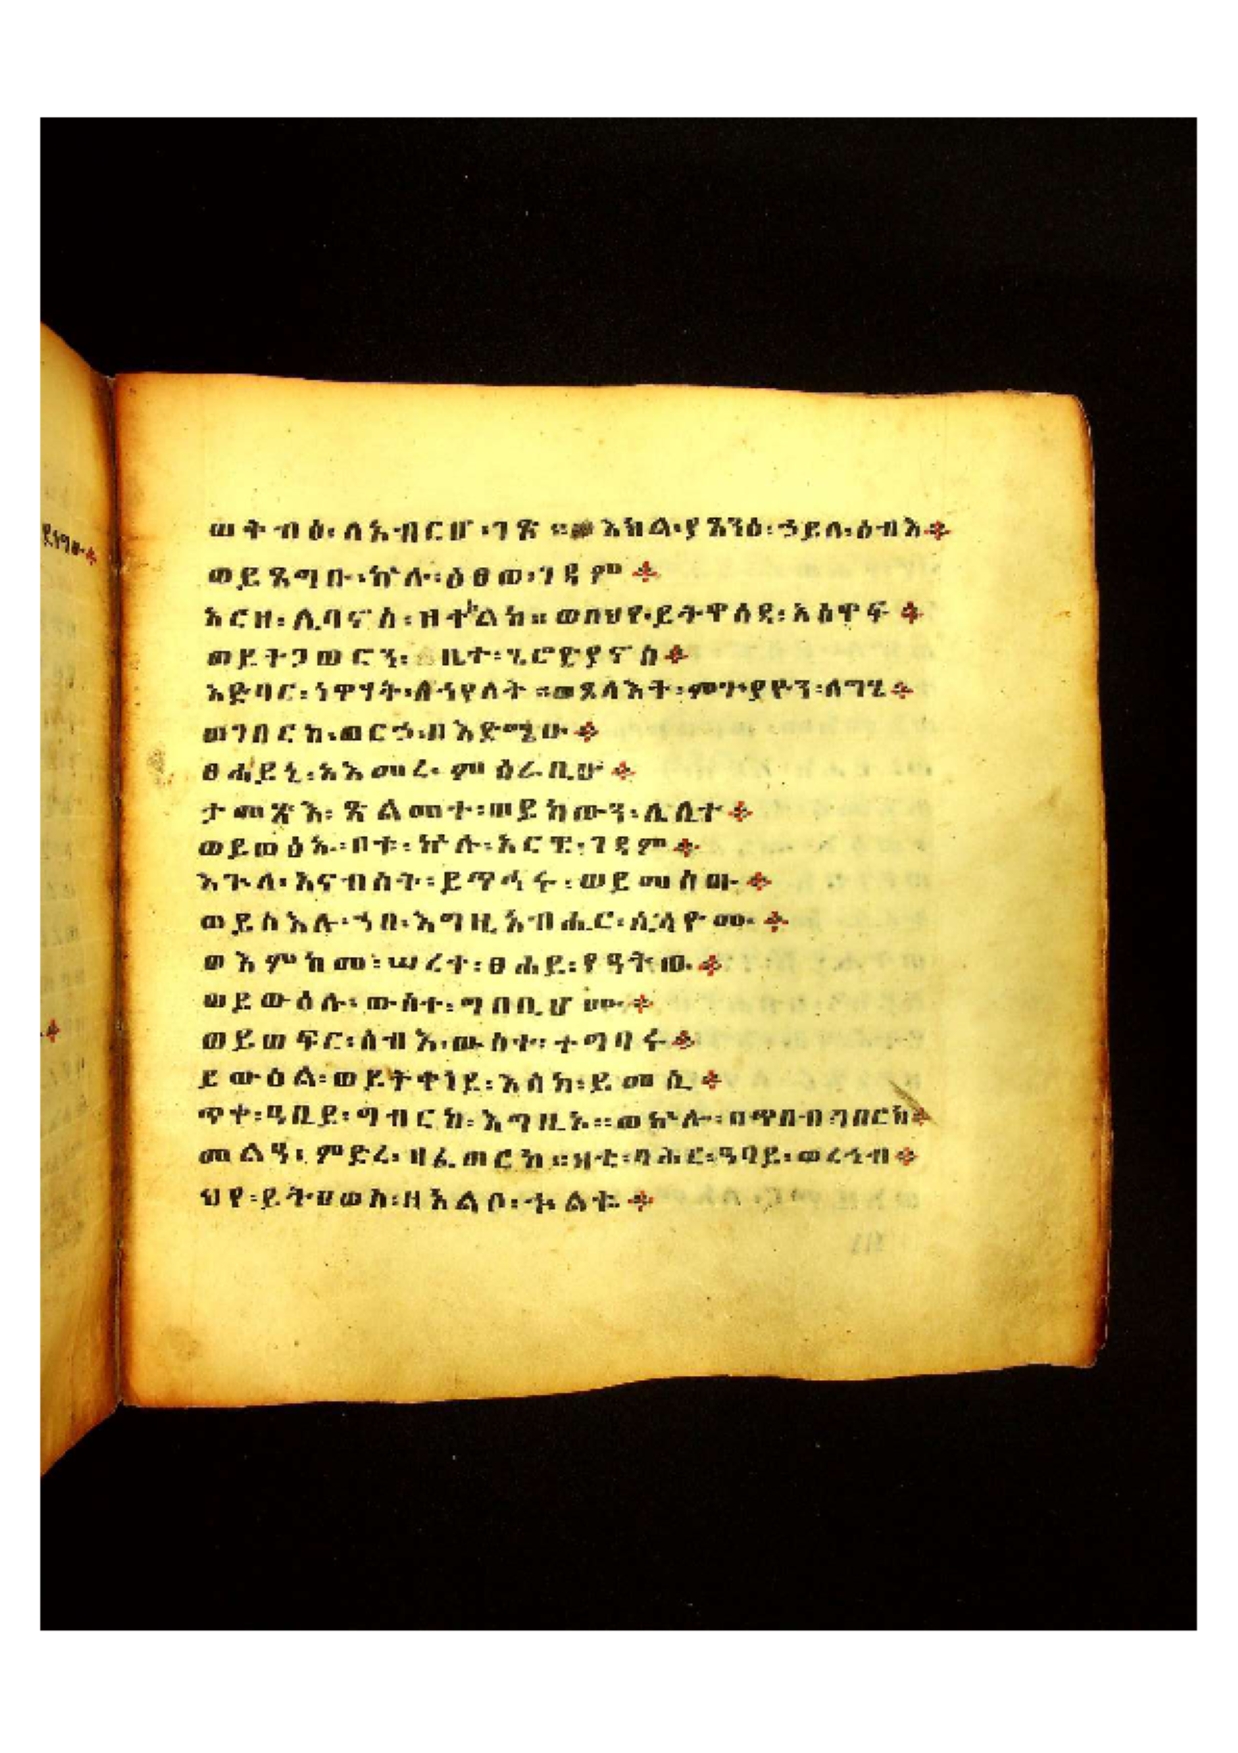 ወትብፅዕ፡ለአብርሆ፡ገጽ። እክል፡ያጸንዕ፡ኃይለ፡ዕብእ
ወይጸግቡ፡ኵሉ፡ዕፀወ፡ገዳም
አርዘ፡ሊባኖስ፡ዘተከልከ። ወበህየ፡ይትዋለዳ፡አዕዋፍ
ወይትጋወርን፡ ቤተ፡ሄሮድያኖስ
አድባር፡ነዋኃት፡ለኀየላት ።ወጸላእት፡ምጕያዮን፡ለግሄ
ወገበርከ፡ወርኃ፡በእድሜሁ
ፀሐይኒ፡አእመረ፡ምዕራቢሁ
ታመጽእ፡ጽልመተ፡ወይከውን፡ሌሊተ
ወይወፅኡ፡ቦቱ፡ኵሉ፡አርዌ፡ገዳም
እጕለ፡አናብስት፡ይጥሓሩ፡ወይመስጡ
ወይስእሉ፡ኀበ፡እግዚአብሔር፡ሲሳዮሙ
ወእምከመ፡ሠረቀ፡ፀሐይ፡የዓትዉ
ወይውዕሉ፡ውስተ፡ግበቢሆሙ
ወይወፍር፡ሰብእ፡ውስተ፡ተግባሩ
ይውዕል፡ወይትቀነይ፡እስከ፡ይመሲ
ጥቀ፡ዓቢይ፡ግብርከ፡እግዚኦ። ወኵሎ፡በጥበብ፡ገበርከ
መልዓ፡ምድረ፡ዘፈጠርከ። ዛቲ፡ባሕር፡ዓባይ፡ወረኃብ
ህየ፡ይትሀወክ፡ዘአልቦ፡ኍልቈ